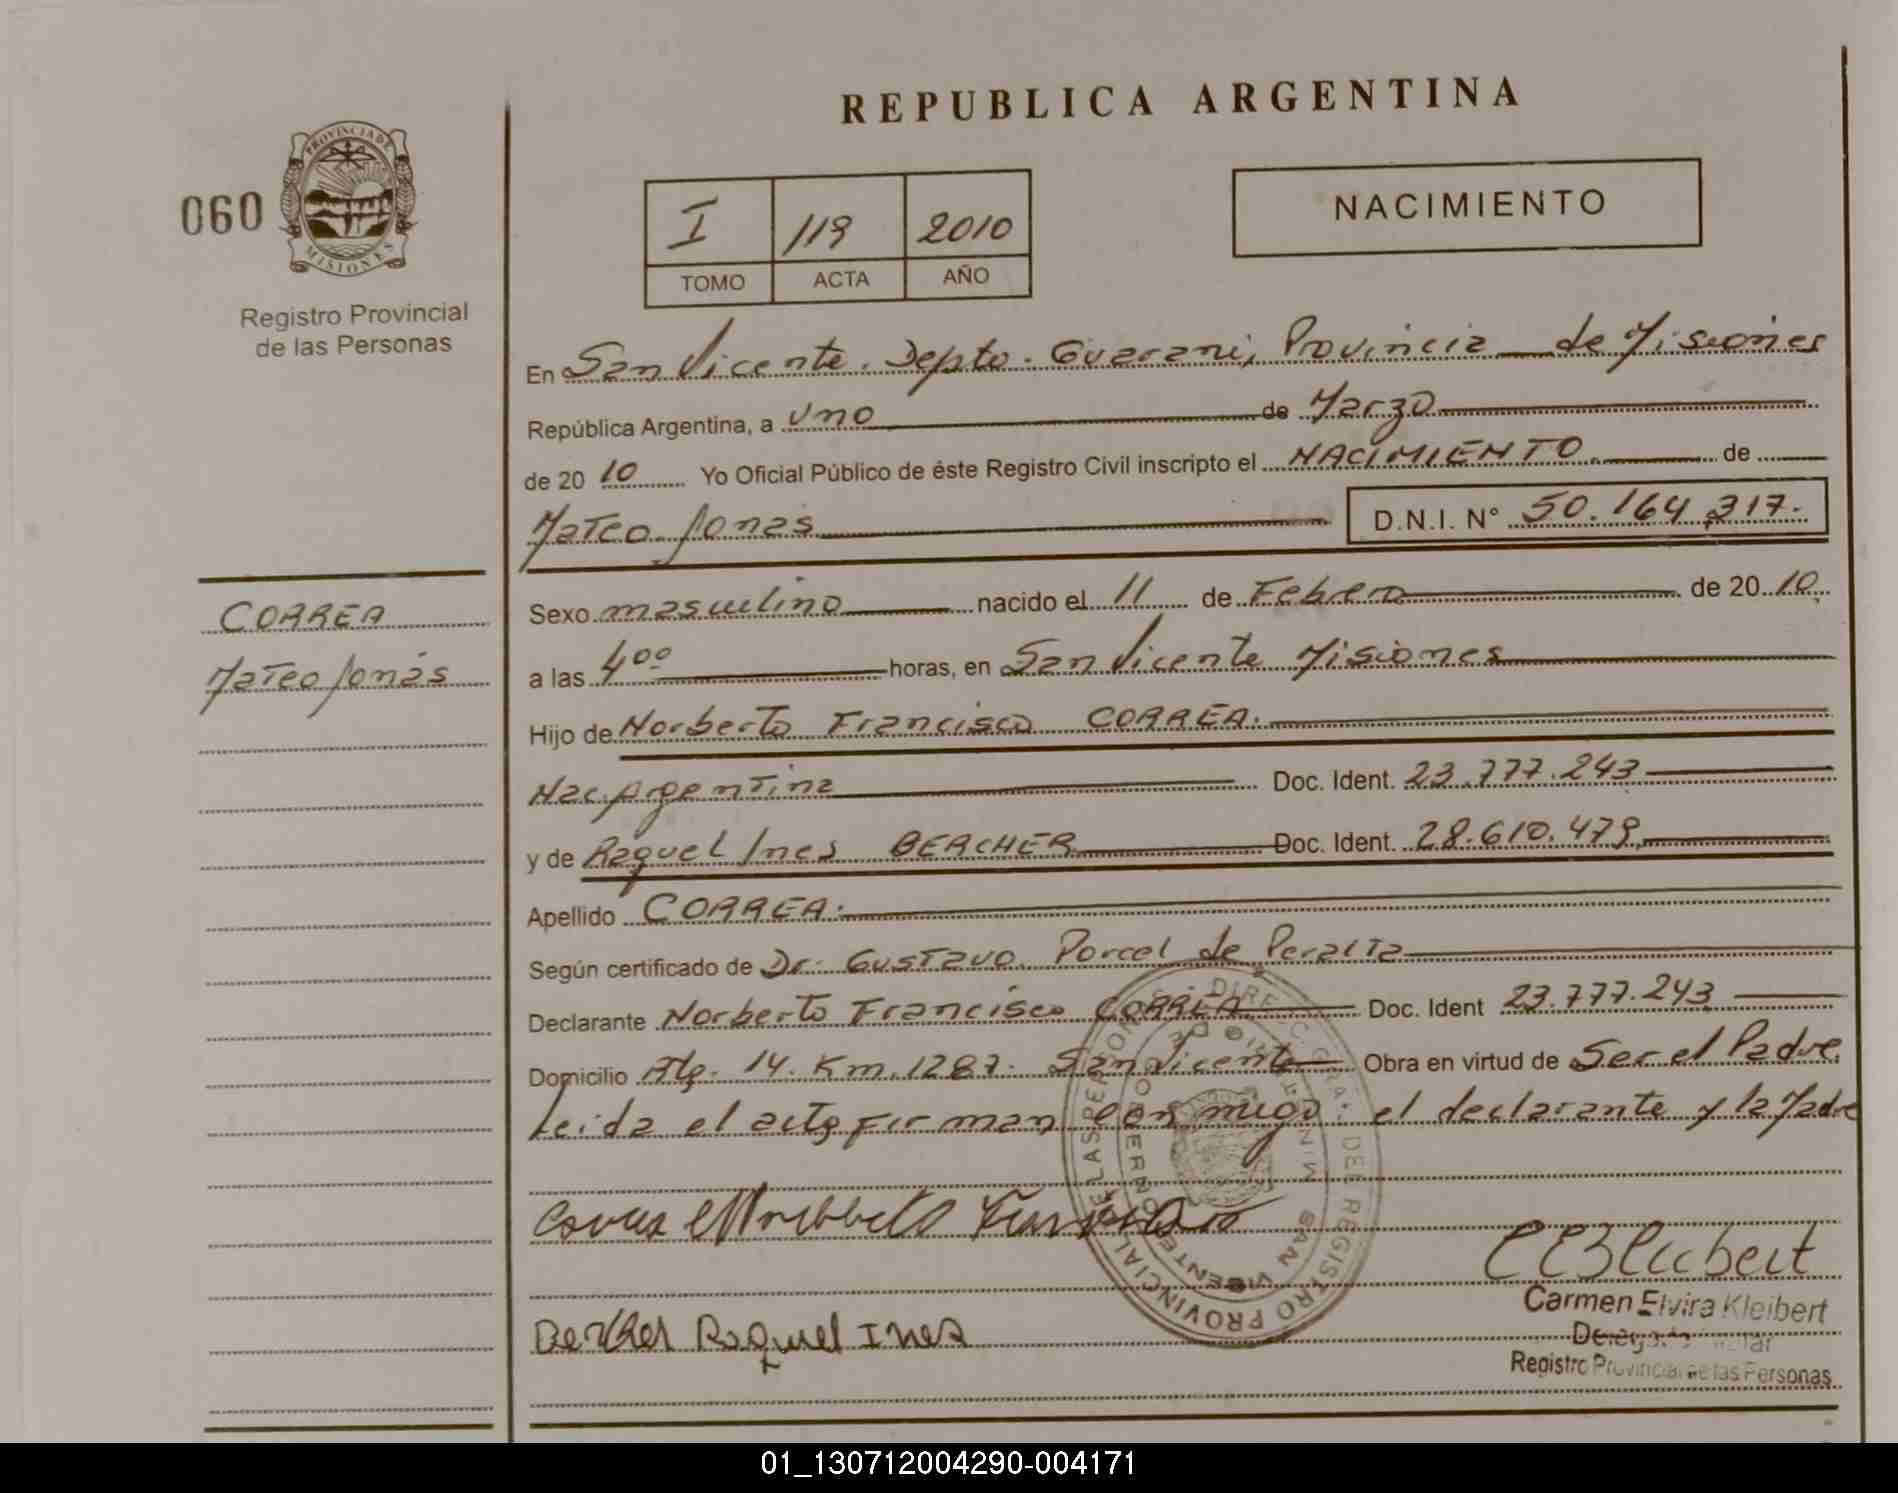 REPUBLICA ARGENTINA
060
PROVINCIA DE
MISIONES
Registro Provincial
de las Personas
I 119 2010
TOMO ACTA AÑO
NACIMIENTO
En San Vicente. Depto. Guarani, Provincia de Misiones
República Argentina, a uno de Marzo
de 20 10 Yo Oficial Público de éste Registro Civil inscripto el NACIMIENTO de
Mateo Jonas D.N.I. N° 50.164.317.
CORREA
Mateo Jonás
Sexo masculino nacido el 11 de Febrero de 20 10
a las 4 00 horas, en San Vicente Misiones
Hijo de Norberto Francisco CORREA.
Nac. Argentina Doc. Ident. 23.777.243
y de Raquel Ines BERCHER Doc. Ident. 28.610.479
Apellido CORREA.
Según certificado de Dr. Gustavo Porcel de Peralta
Declarante Norberto Francisco CORREA Doc. Ident 23.777.243
Domicilio Rta. 14. Km. 1287. San Vicente Obra en virtud de Ser el Padre.
Leida el acta firman conmigo: el declarante y la Madre
Correa Norberto Francisco
Bercher Raquel Ines
Carmen Elvira Kleibert
Registro Provincial de las Personas
SAN VICENTE
01_130712004290-004171